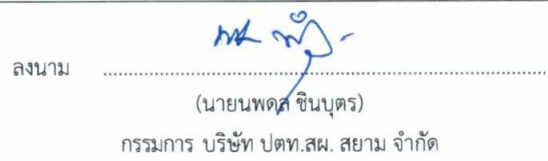 ลงนาม ................................................................
(นายนพดล ชินบุตร)
กรรมการ บริษัท ปตท.สผ. สยาม จำกัด